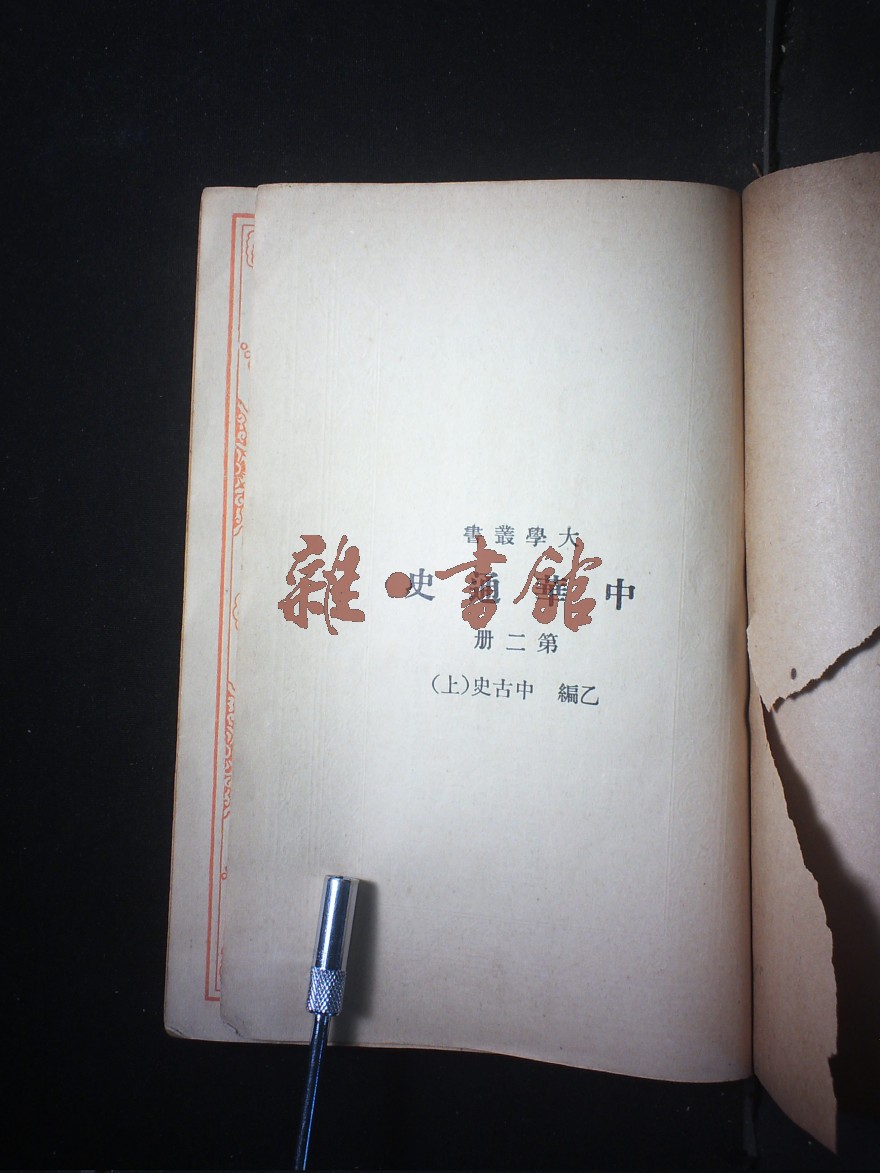 大學叢書
中華通史
第二册
乙編 中古史(上)
雜·書館